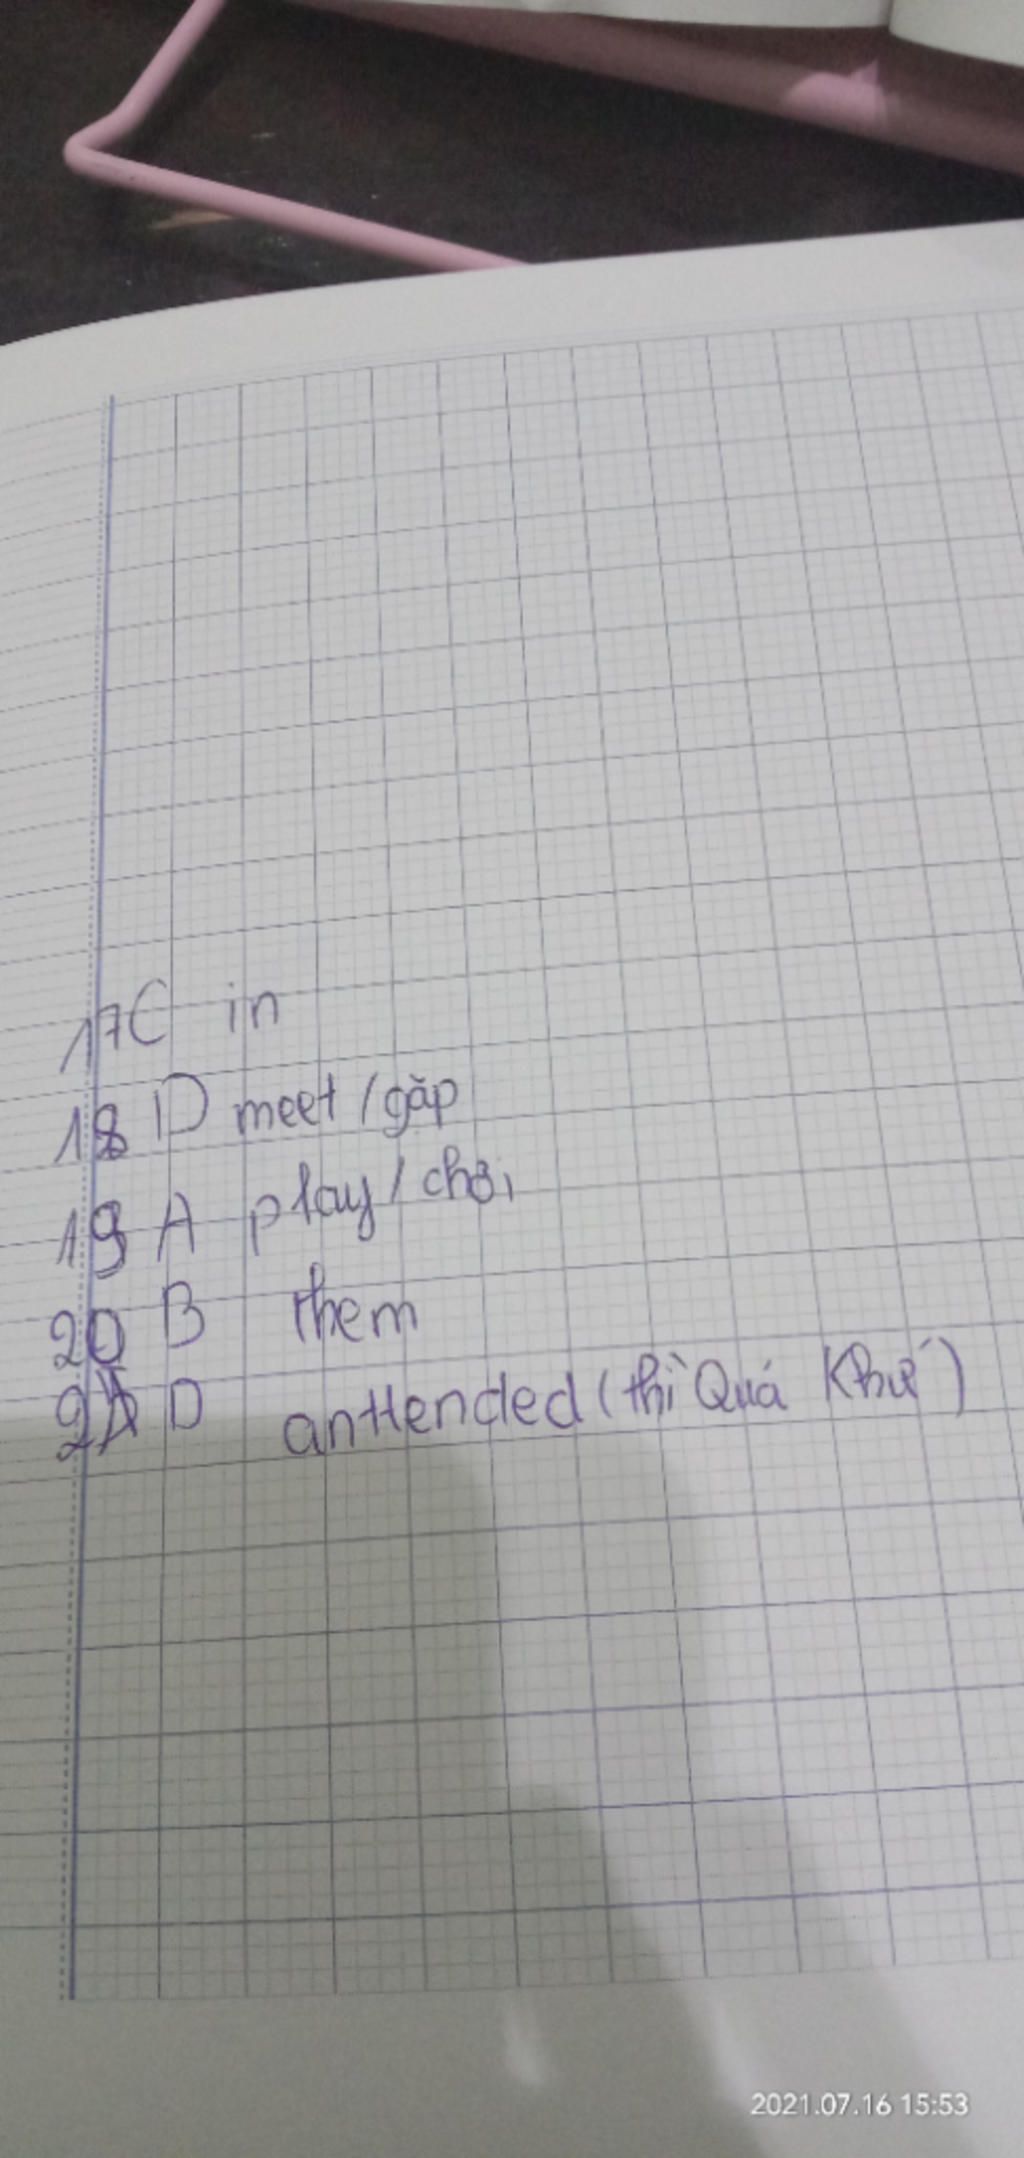 17C in
18 D meet / gặp
19 A play / chơi
20 B them
21 D anttended (thì Quá Khứ)
2021.07.16 15:53